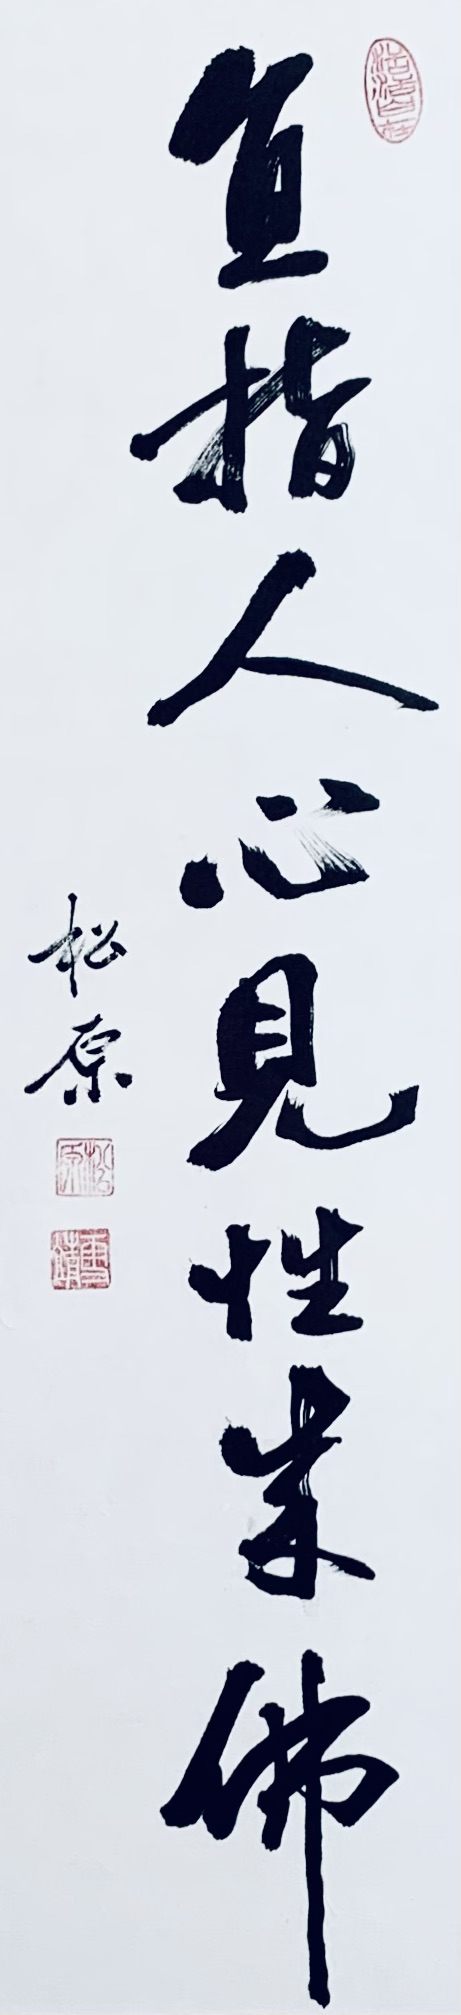 直指人心見性成佛
松原
松原